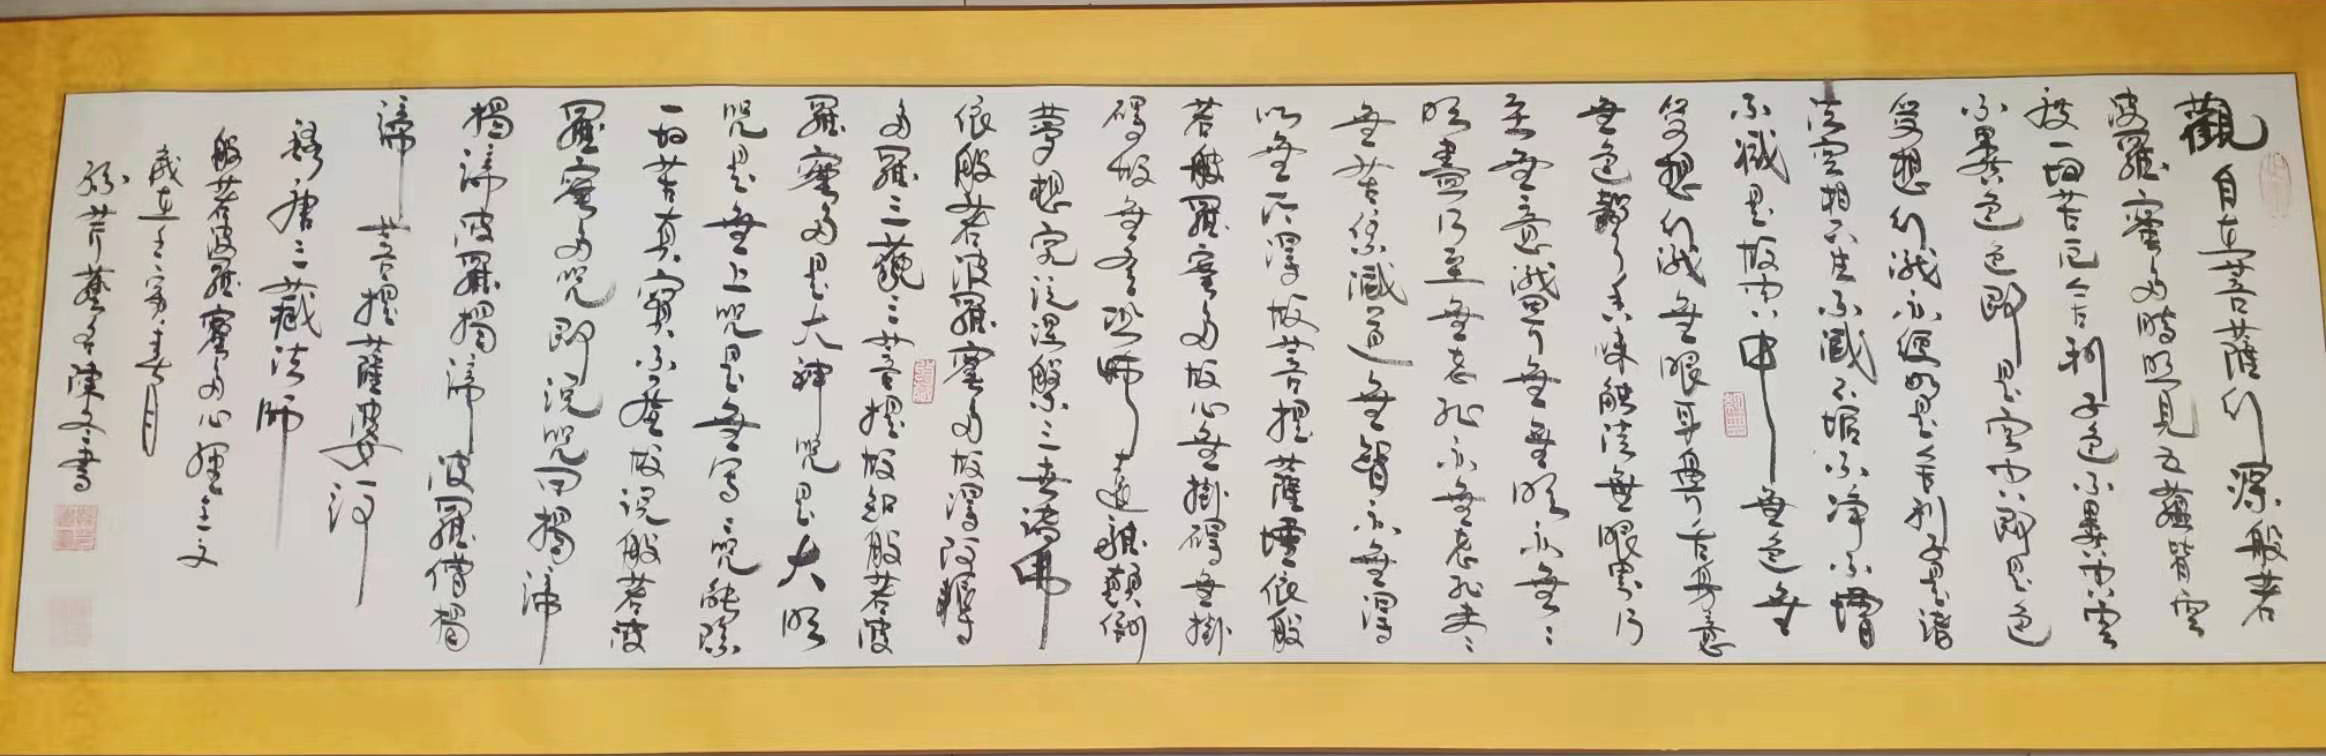 觀自在菩薩行深般若
波羅蜜多時照見五蘊皆空
度一切苦厄舍利子色不異空空
不異色色即是空空即是色
受想行識亦復如是舍利子是諸
法空相不生不滅不垢不淨不增
不減是故空中無色無
受想行識無眼耳鼻舌身意
無色聲香味觸法無眼界乃
至無意識界無無明亦無〻
明盡乃至無老死亦無老死盡
無苦集滅道無智亦無得
以無所得故菩提薩埵依般
若般羅蜜多故心無掛礙無掛
礙故無有恐怖遠離顛倒
夢想究竟涅槃三世諸佛
依般若波羅蜜多故得阿耨
多羅三藐三菩提故知般若波
羅蜜多是大神咒是大明
咒是無上咒是無等〻咒能除
一切苦真實不虛故說般若波
羅蜜多咒即說咒曰揭諦
揭諦波羅揭諦波羅僧揭
諦菩提薩婆訶
錄唐三藏法師
般若波羅蜜多心經全文
歲在壬寅春月
於芹藝齋陳文書